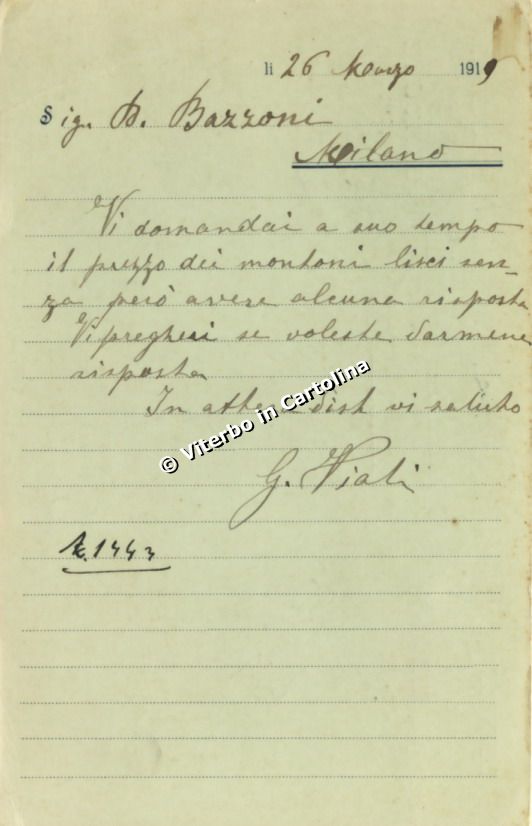 li 26 Marzo 1919
Sig. D. Bazzoni
Milano
Vi domandai a suo tempo
il prezzo dei montoni lisci sen-
za però avere alcuna risposta
Vi pregherei se voleste darmene
risposta
In attesa vi saluto
G. Viali
© Viterbo in Cartolina